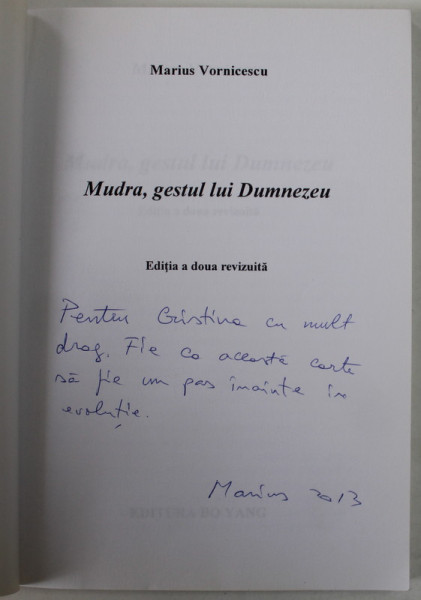 Marius Vornicescu
Mudra, gestul lui Dumnezeu
Ediția a doua revizuită
Pentru Cristina cu mult
drag. Fie ca această carte
să fie un pas înainte în
evoluție.
Marius 2013
EDITURA DO YANG